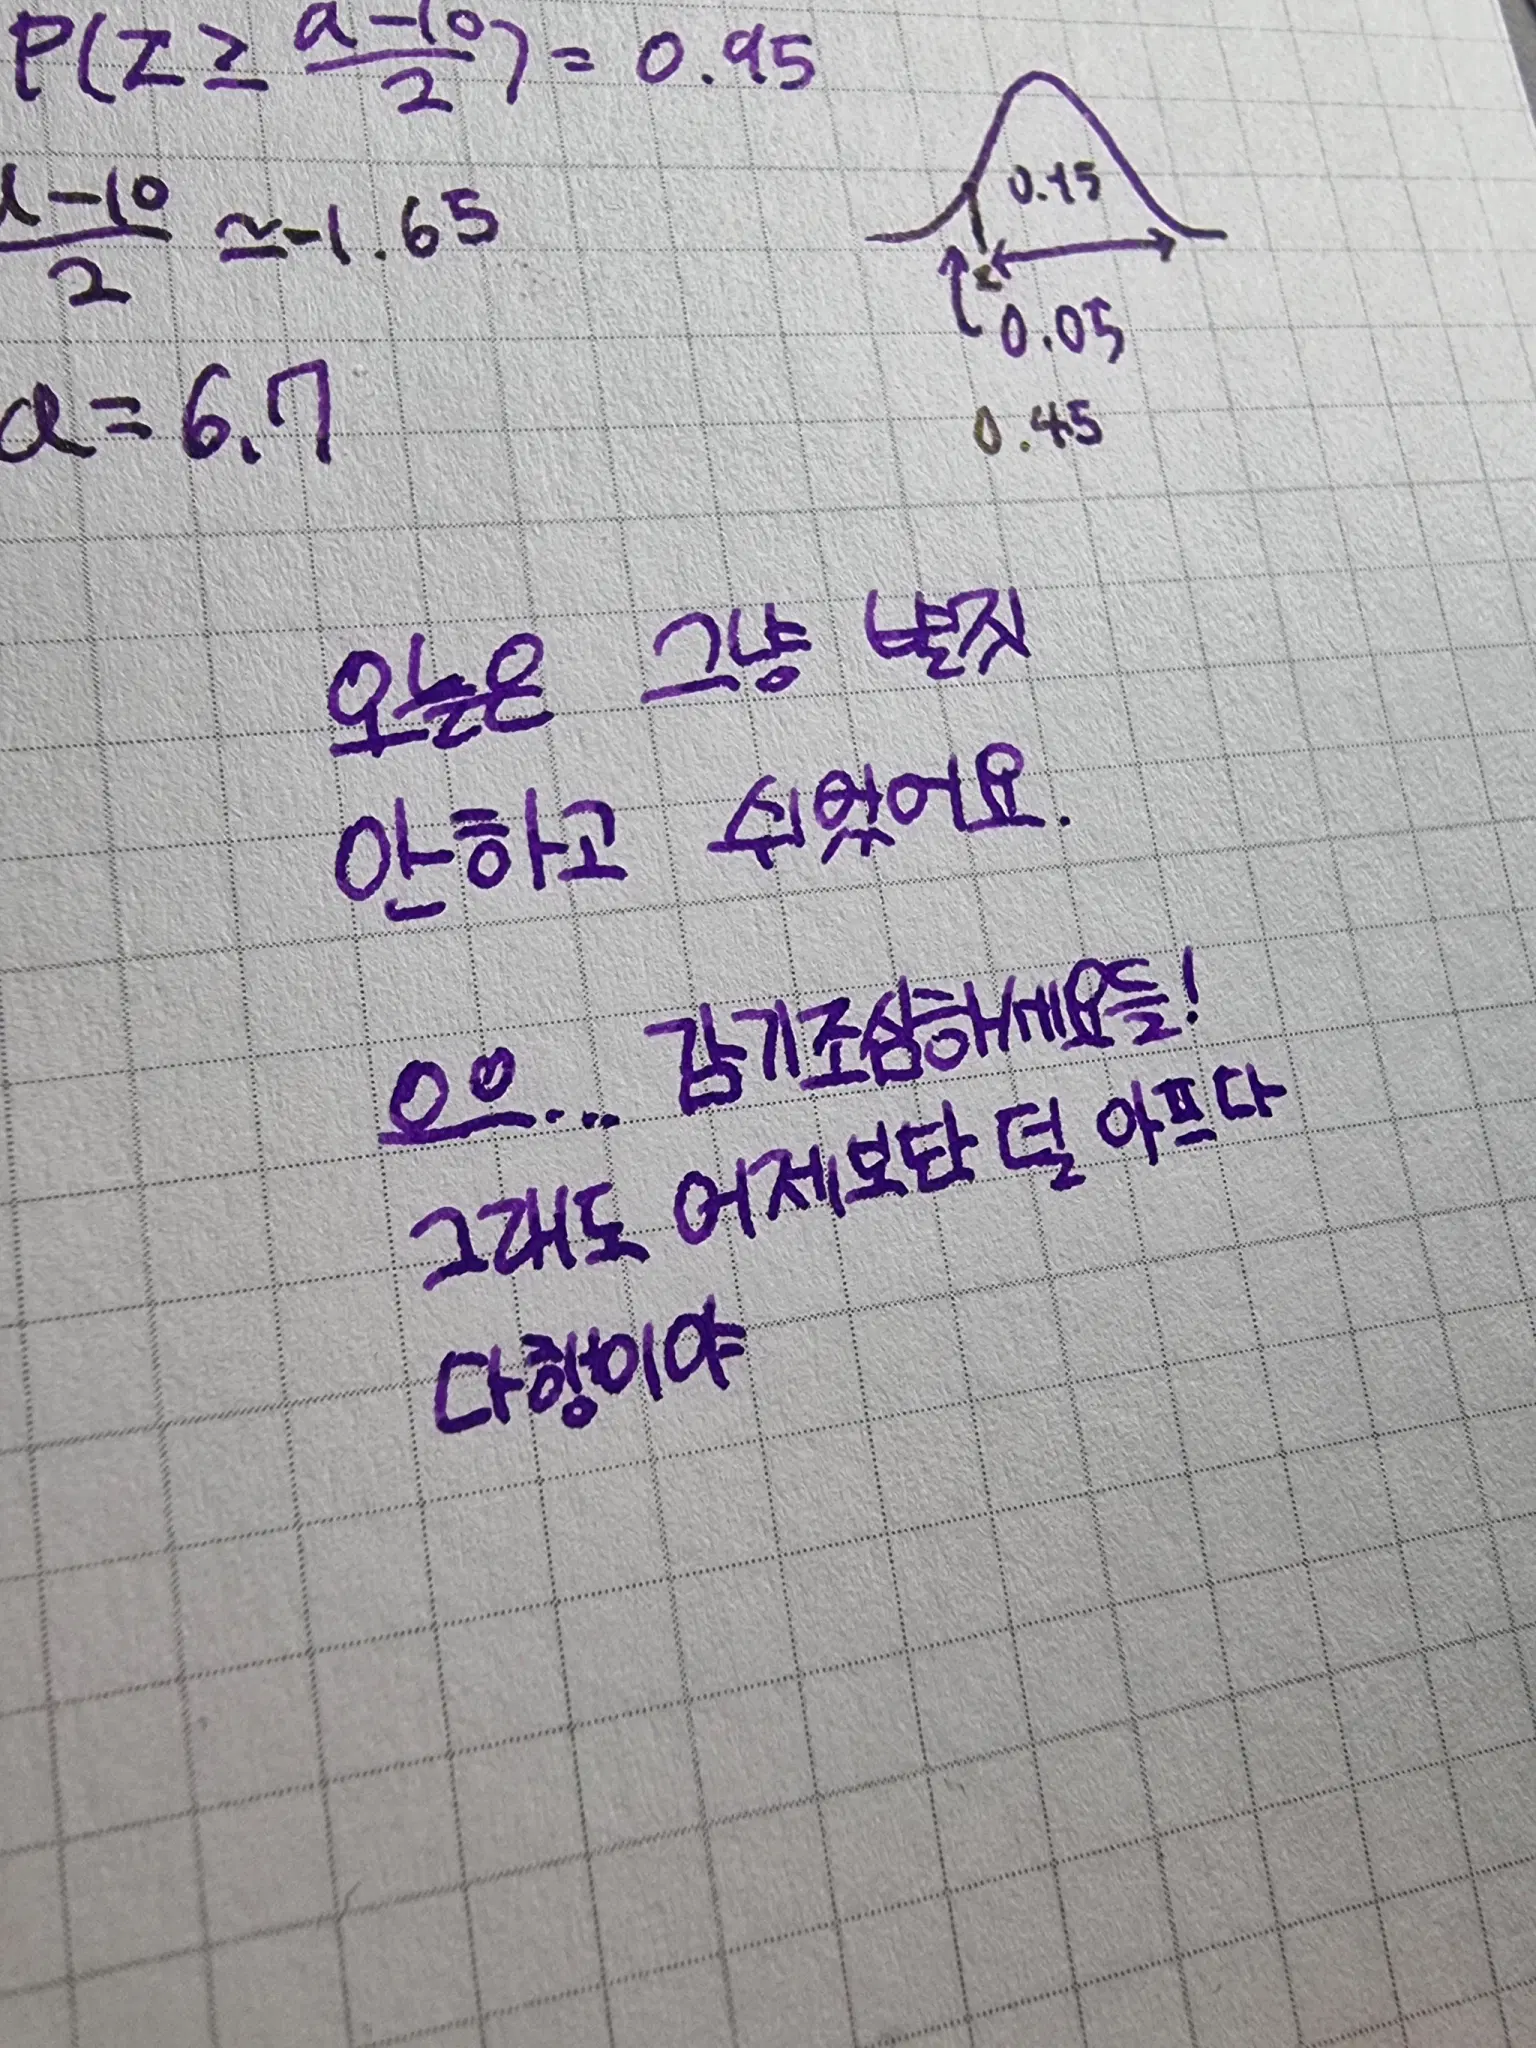 P(Z ≥ a-10/2) = 0.95
a-10/2 ≃ -1.65
0.95
0.05
a = 6.7
0.45
오늘은 그냥 별짓
안하고 쉬었어요.
으으... 감기조심하세요들!
그래도 어제보단 덜 아프다
다행이야